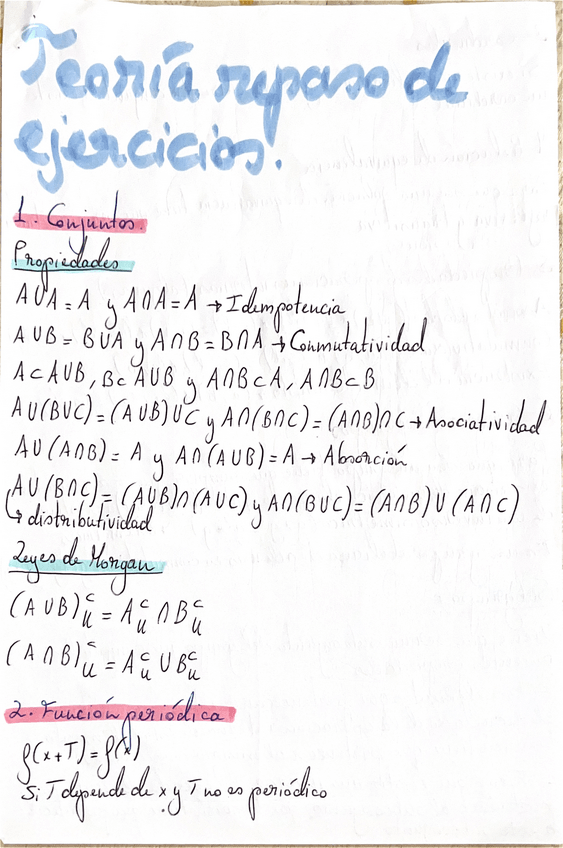 Teoría repaso de
ejercicios.
1. Conjuntos.
Propiedades
A∪A = A y A∩A = A → Idempotencia
A∪B = B∪A y A∩B = B∩A → Conmutatividad
A⊂A∪B, B⊂A∪B y A∩B⊂A, A∩B⊂B
A∪(B∪C) = (A∪B)∪C y A∩(B∩C) = (A∩B)∩C → Asociatividad
A∪(A∩B) = A y A∩(A∪B) = A → Absorción
A∪(B∩C) = (A∪B)∩(A∪C) y A∩(B∪C) = (A∩B)∪(A∩C)
↳ distributividad
Leyes de Morgan
(A∪B)ᶜᵤ = Aᶜᵤ ∩ Bᶜᵤ
(A∩B)ᶜᵤ = Aᶜᵤ ∪ Bᶜᵤ
2. Función periódica
f(x+T) = f(x)
Si T depende de x y T no es periódico